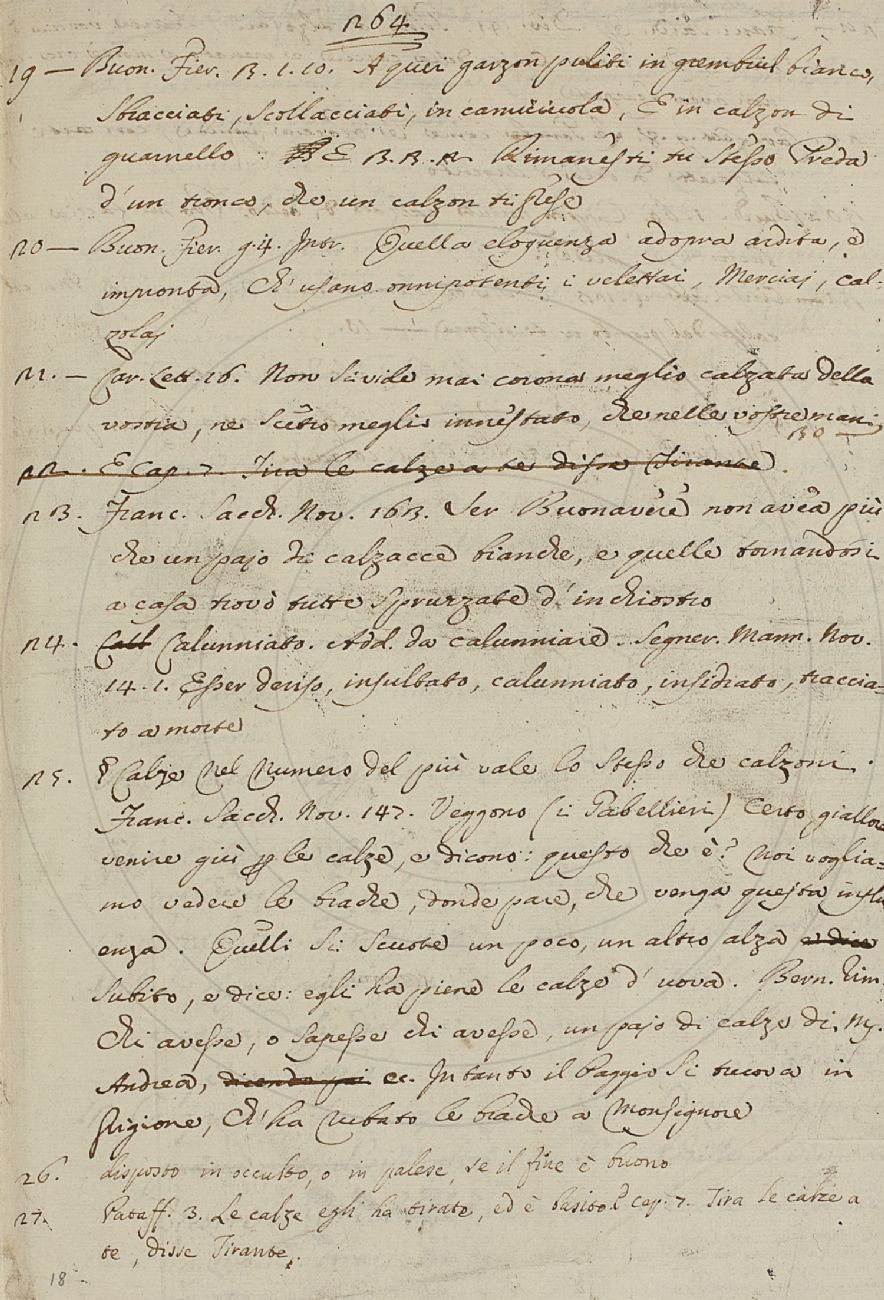 264
19 — Buon. Fier. 3. 1. 10. A quei garzon puliti in grembiul bianco,
Sbracciati, scollacciati, in camiciuola, E in calzon di
guarnello E 3. 3. 2. Rimanesti tu stesso Preda
d'un tronco, che un calzon ti prese
20 — Buon. Fier. g. 4. Intr. Quella eloquenza adopra ardita, e
impronta, Ch'usano onnipotenti i velettai, Merciaj, cal-
zolaj
21. — Car. Lett. 16. Non si vide mai corona meglio calzata della
vostra, ne scetro meglio innestato, che nelle vostre mani
130 —
22. E Cap. 7. Tira le calze a te disse Tirante.
23. Franc. Sacch. Nov. 163. Ser Buonavere non avea più
che un pajo di calzacce bianche, e quelle tornandosi
a casa trovò tutte sprurzate d'inchiostro
24. Call Calunniato. Add. da calunniare. Segner. Mann. Nov.
14. 1. Esser deriso, insultato, calunniato, insidiato, traccia=
to a morte
25. § Calze nel numero del più vale lo stesso che calzoni.
Franc. Sacch. Nov. 147. Veggono (i Gabellieri) certo giallore
venire giù p le calze, e dicono: questo che è? Noi voglia=
mo vedere le brache, donde pare, che venga questa influ
enza. Quelli si scuote un poco, un altro alza e dice
subito, e dice: egli ha piene le calze d'uova. Bern. Rim.
Chi avesse, o sapesse chi avesse, un pajo di calze di M.
Andrea, dicendo poi ec. Intanto il paggio si trova in
prigione, Ch'ha rubato le brache a Monsignore
26. disposto in occulto, o in palese, se il fine è buono
27. Pataff. 3. Le calze egli ha tirate, ed è basito. E cap. 7. Tira le calze a
te, disse Tirante.
18